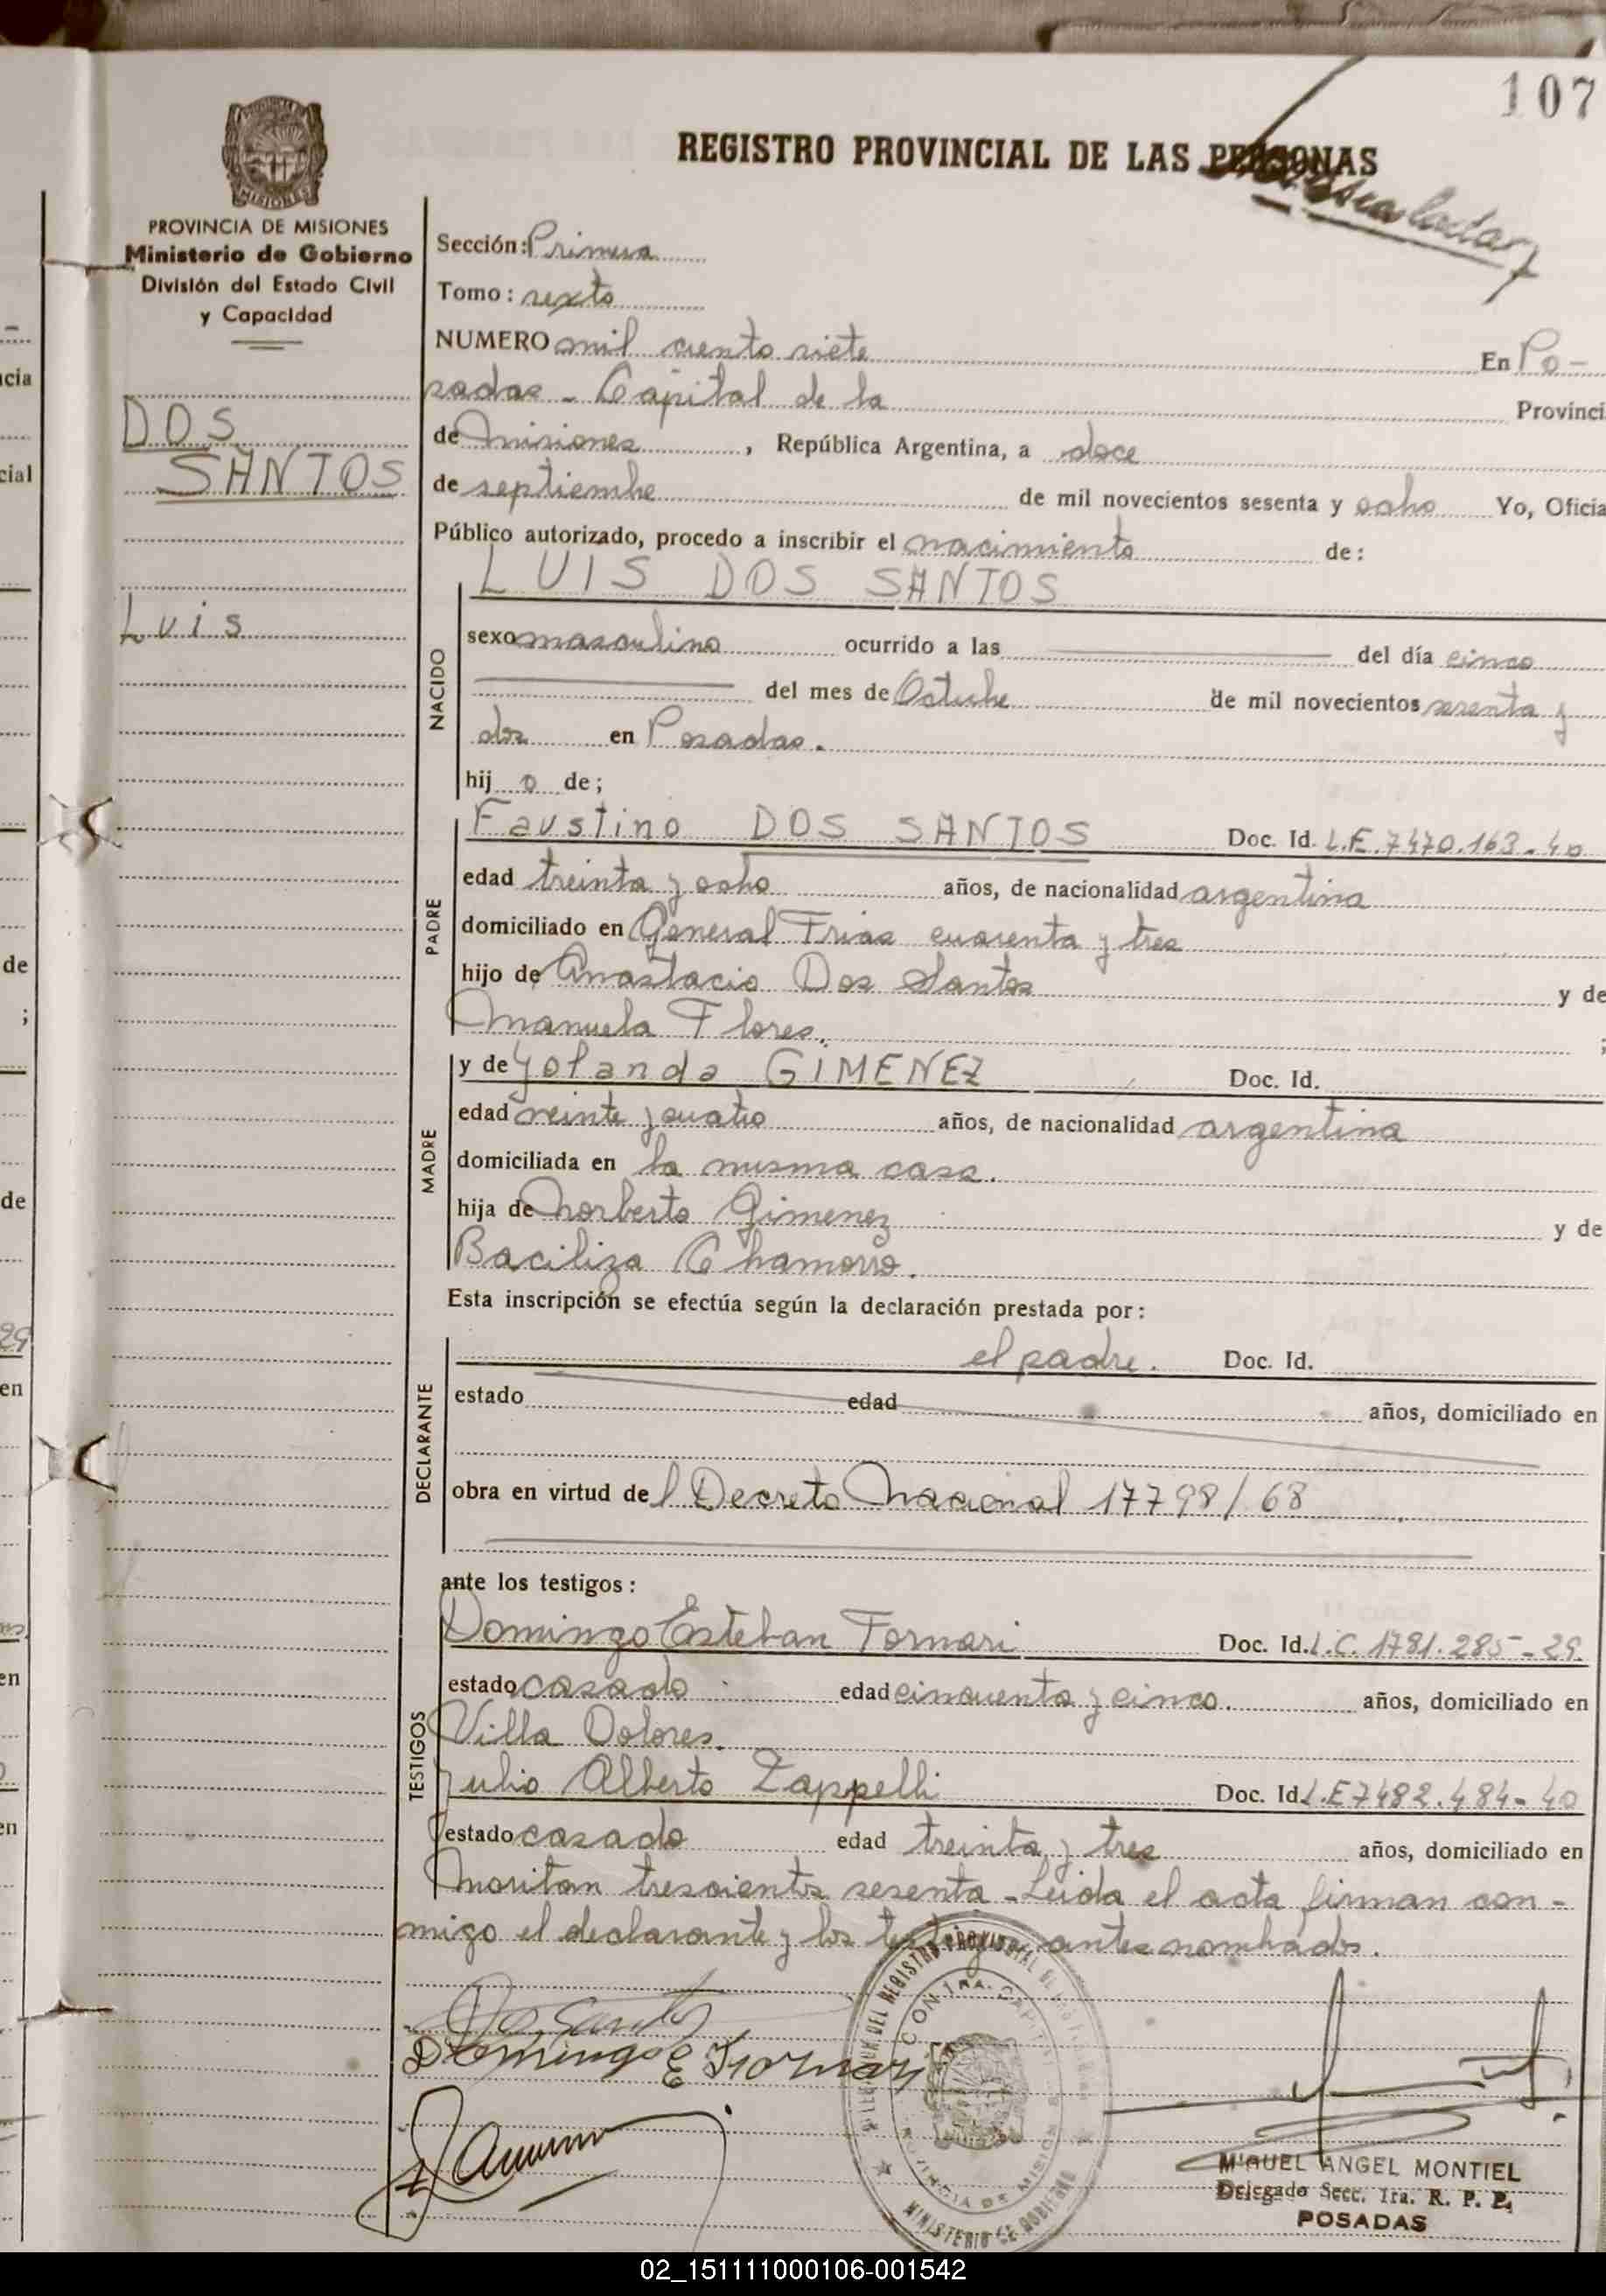 107
REGISTRO PROVINCIAL DE LAS PERSONAS
PROVINCIA DE MISIONES
Ministerio de Gobierno
División del Estado Civil
y Capacidad
DOS
SANTOS
Luis
Sección: Primera
Tomo: sexto
NUMERO mil ciento siete En Po-
sadas - Capital de la Provinci
de Misiones, República Argentina, a doce
de septiembre de mil novecientos sesenta y ocho Yo, Oficia
Público autorizado, procedo a inscribir el nacimiento de:
LUIS DOS SANTOS
NACIDO
sexo masculino ocurrido a las del día cinco
del mes de Octubre de mil novecientos sesenta y
dos en Posadas.
hijo de;
PADRE
Faustino DOS SANTOS Doc. Id. L.E. 7470.163-40
edad treinta y ocho años, de nacionalidad argentina
domiciliado en General Frias cuarenta y tres
hijo de Anastacio Dos Santos y de
Manuela Flores. ;
MADRE
y de Yolanda GIMENEZ Doc. Id.
edad veinte y cuatro años, de nacionalidad argentina
domiciliada en la misma casa.
hija de Norberto Gimenez y de
Baciliza Chamorro.
Esta inscripción se efectúa según la declaración prestada por:
DECLARANTE
el padre. Doc. Id.
estado edad años, domiciliado en
obra en virtud de l Decreto Nacional 17798/68
ante los testigos:
TESTIGOS
Domingo Esteban Fornari Doc. Id. L.C. 1781.285-29.
estado casado edad cincuenta y cinco. años, domiciliado en
Villa Dolores.
Julio Alberto Zappelli Doc. Id. L.E 7482.484-40
estado casado edad treinta y tres años, domiciliado en
Moritan trescientos sesenta - Leida el acta firman con-
migo el declarante y los testigos antes nombrados.
Dos Santos
Domingo E Fornari
MIGUEL ANGEL MONTIEL
Delegado Secc. 1ra. R. P. P.
POSADAS
MINISTERIO DE GOBIERNO
PROVINCIA DE MISIONES
02_151111000106-001542